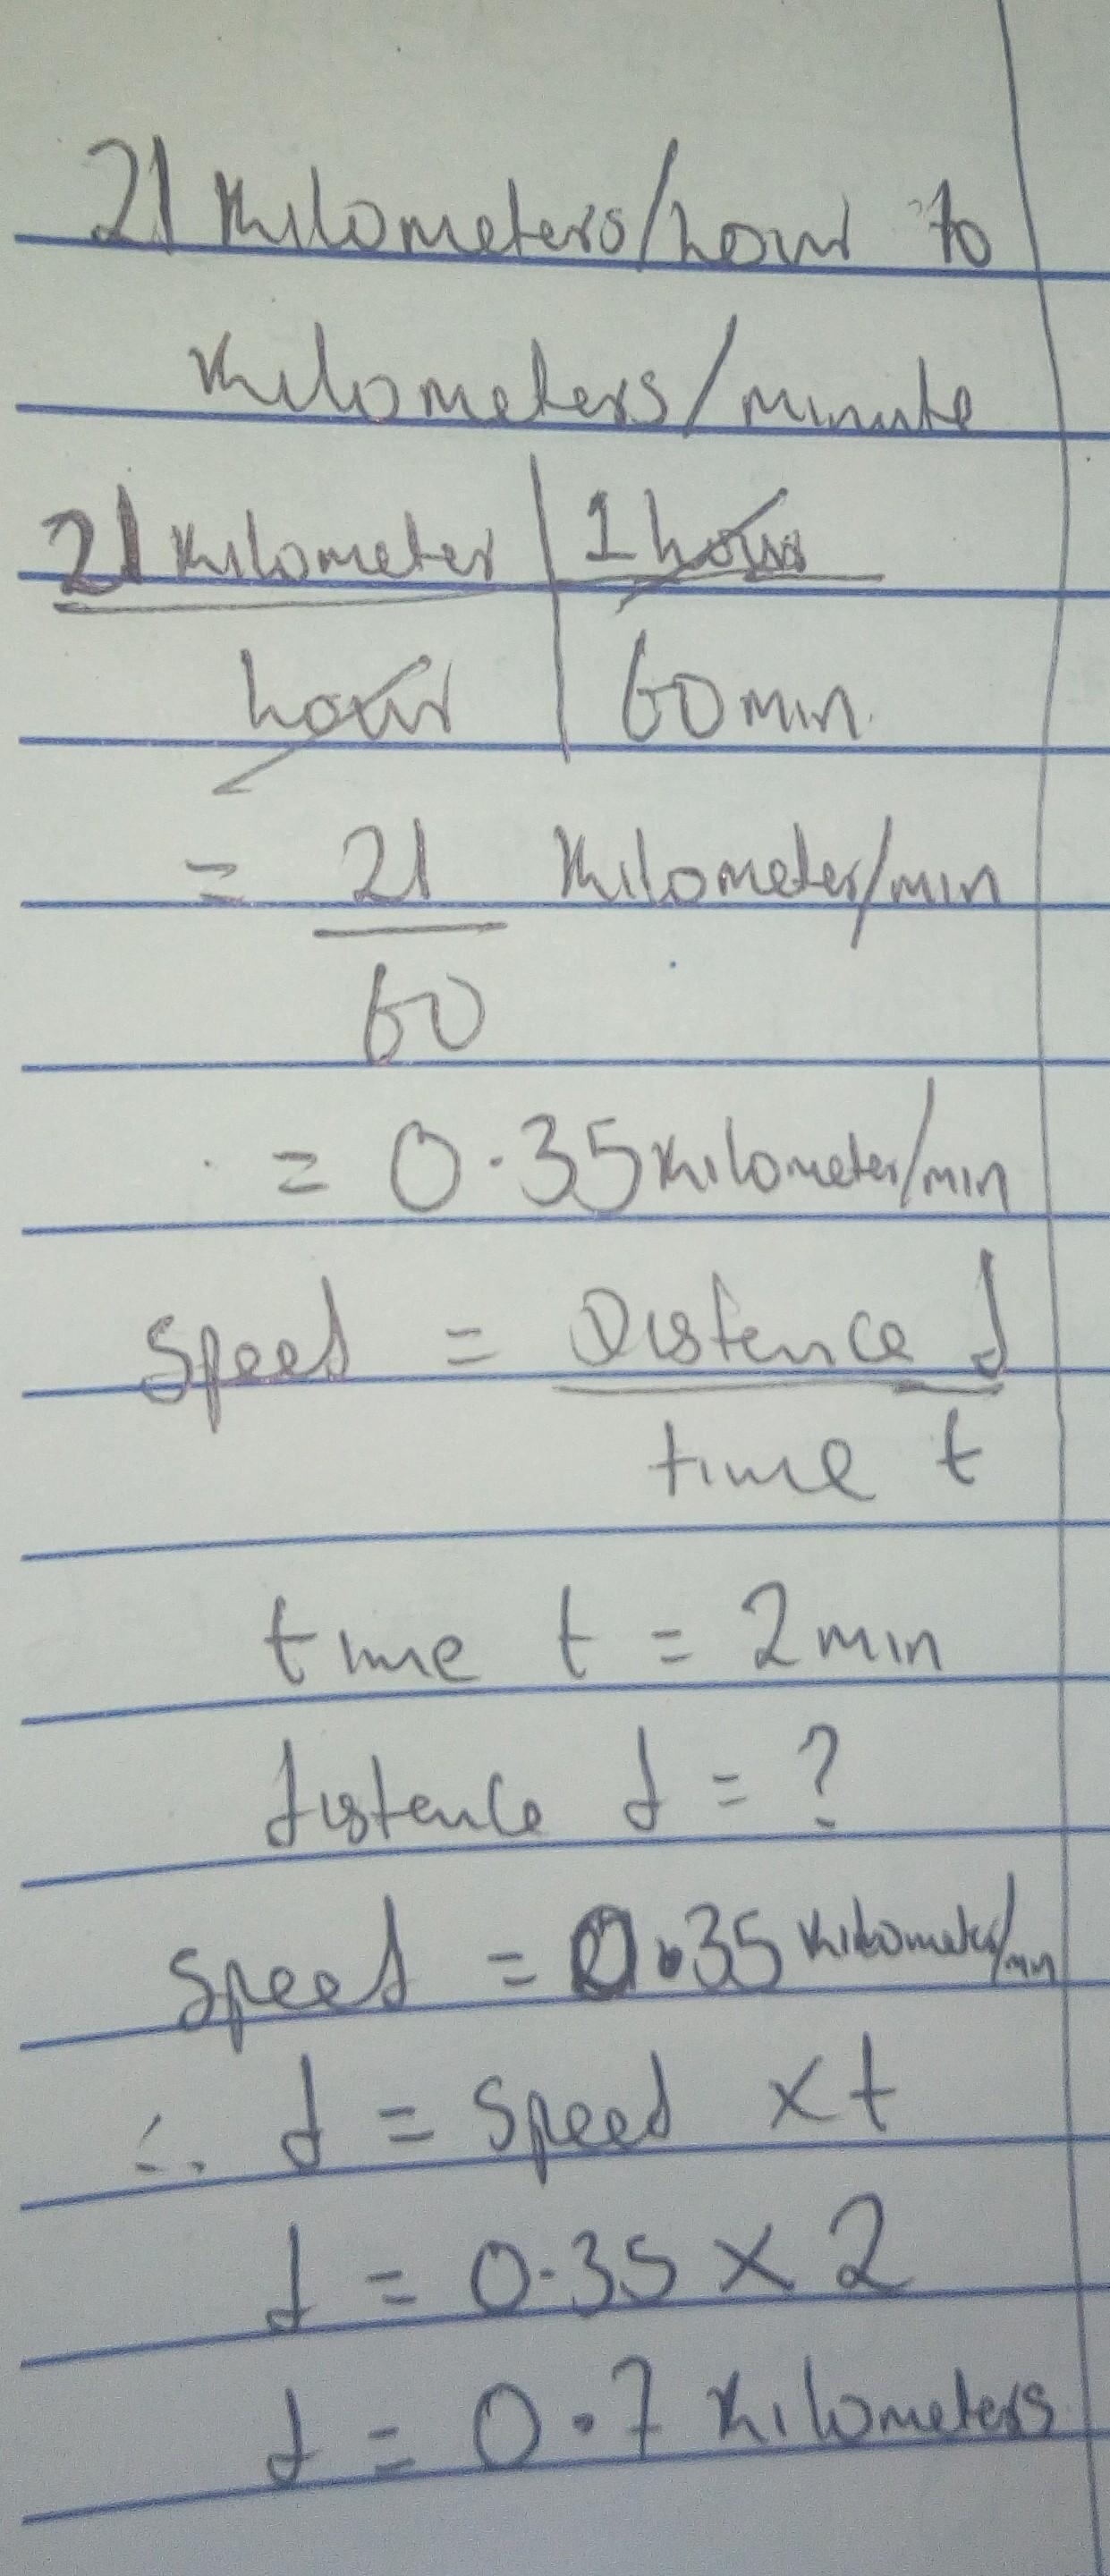 21 kilometers/hour to
kilometers/minute
21 kilometer | 1 hour
hour | 60 min.
= 21 kilometer/min
60
= 0.35 kilometer/min
Speed = Distence d
time t
time t = 2 min
distence d = ?
Speed = 0.35 kilometer/min
∴ d = Speed × t
d = 0.35 × 2
d = 0.7 kilometers